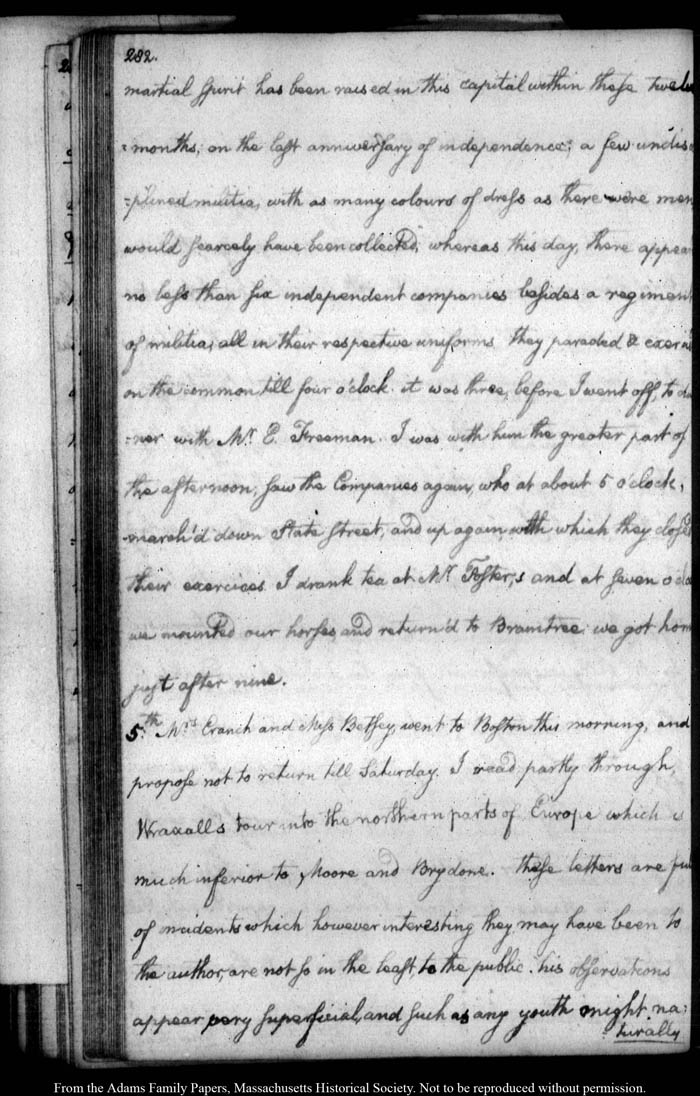 282.
martial spirit has been raised in this capital within these twelve
=months, on the last anniversary of independence; a few undis
=plined militia, with as many colours of dress as there were men
would scarcely have been collected, whereas this day, there appear
no less than six independent companies besides a regiment
of militia, all in their respective uniforms they paraded & exer
on the common till four o'clock. it was three, before I went off, to di
=ner with Mr. E. Freeman. I was with him the greater part of
the afternoon, saw the Companies again, who at about 5 o'clock,
march'd down State street, and up again, with which they clos
their exercices. I drank tea at Mr. Foster,s and at seven o clo
we mounted our horses, and return'd to Braintree. we got hom
just after nine.
5.th Mrs. Cranch and Miss Betsey, went to Boston this morning, and
propose not to return till Saturday. I read, partly through,
Wraxall's tour into the northern parts of Europe which is
much inferior to, Moore and Brydone. these letters are ful
of incidents which however interesting they may have been to
the author, are not so in the least, to the public. his observations
appear very superficial, and such as any youth might na:
turally
From the Adams Family Papers, Massachusetts Historical Society. Not to be reproduced without permission.